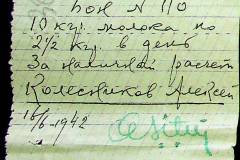 Бон N 110
10 кгр. молока по
2½ кгр. в день
За наличный расчет
Колесников Алексей
16/6-1942